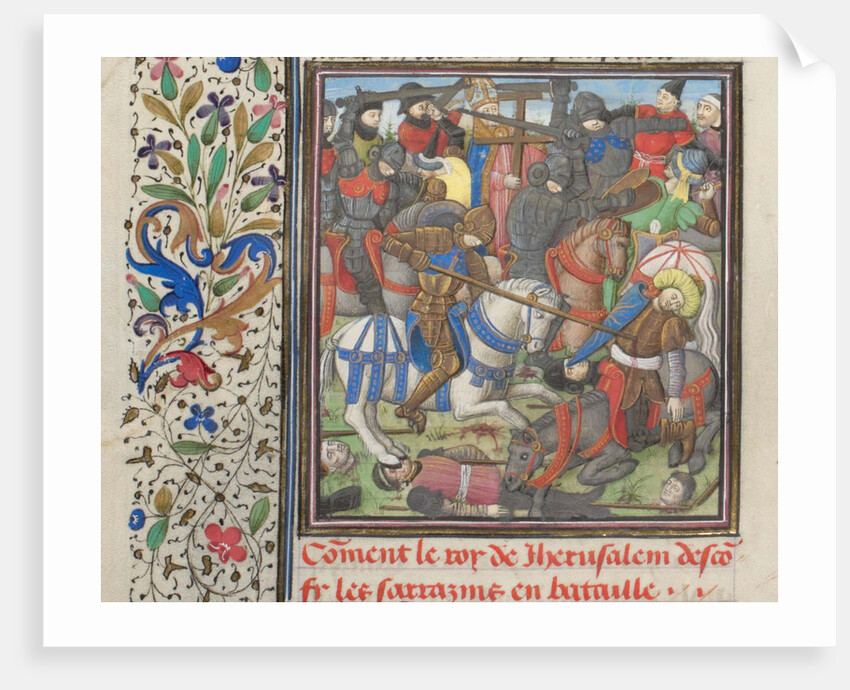 Cõment le roy de Jherusalem descõ
fit les sarrazins en bataille . .